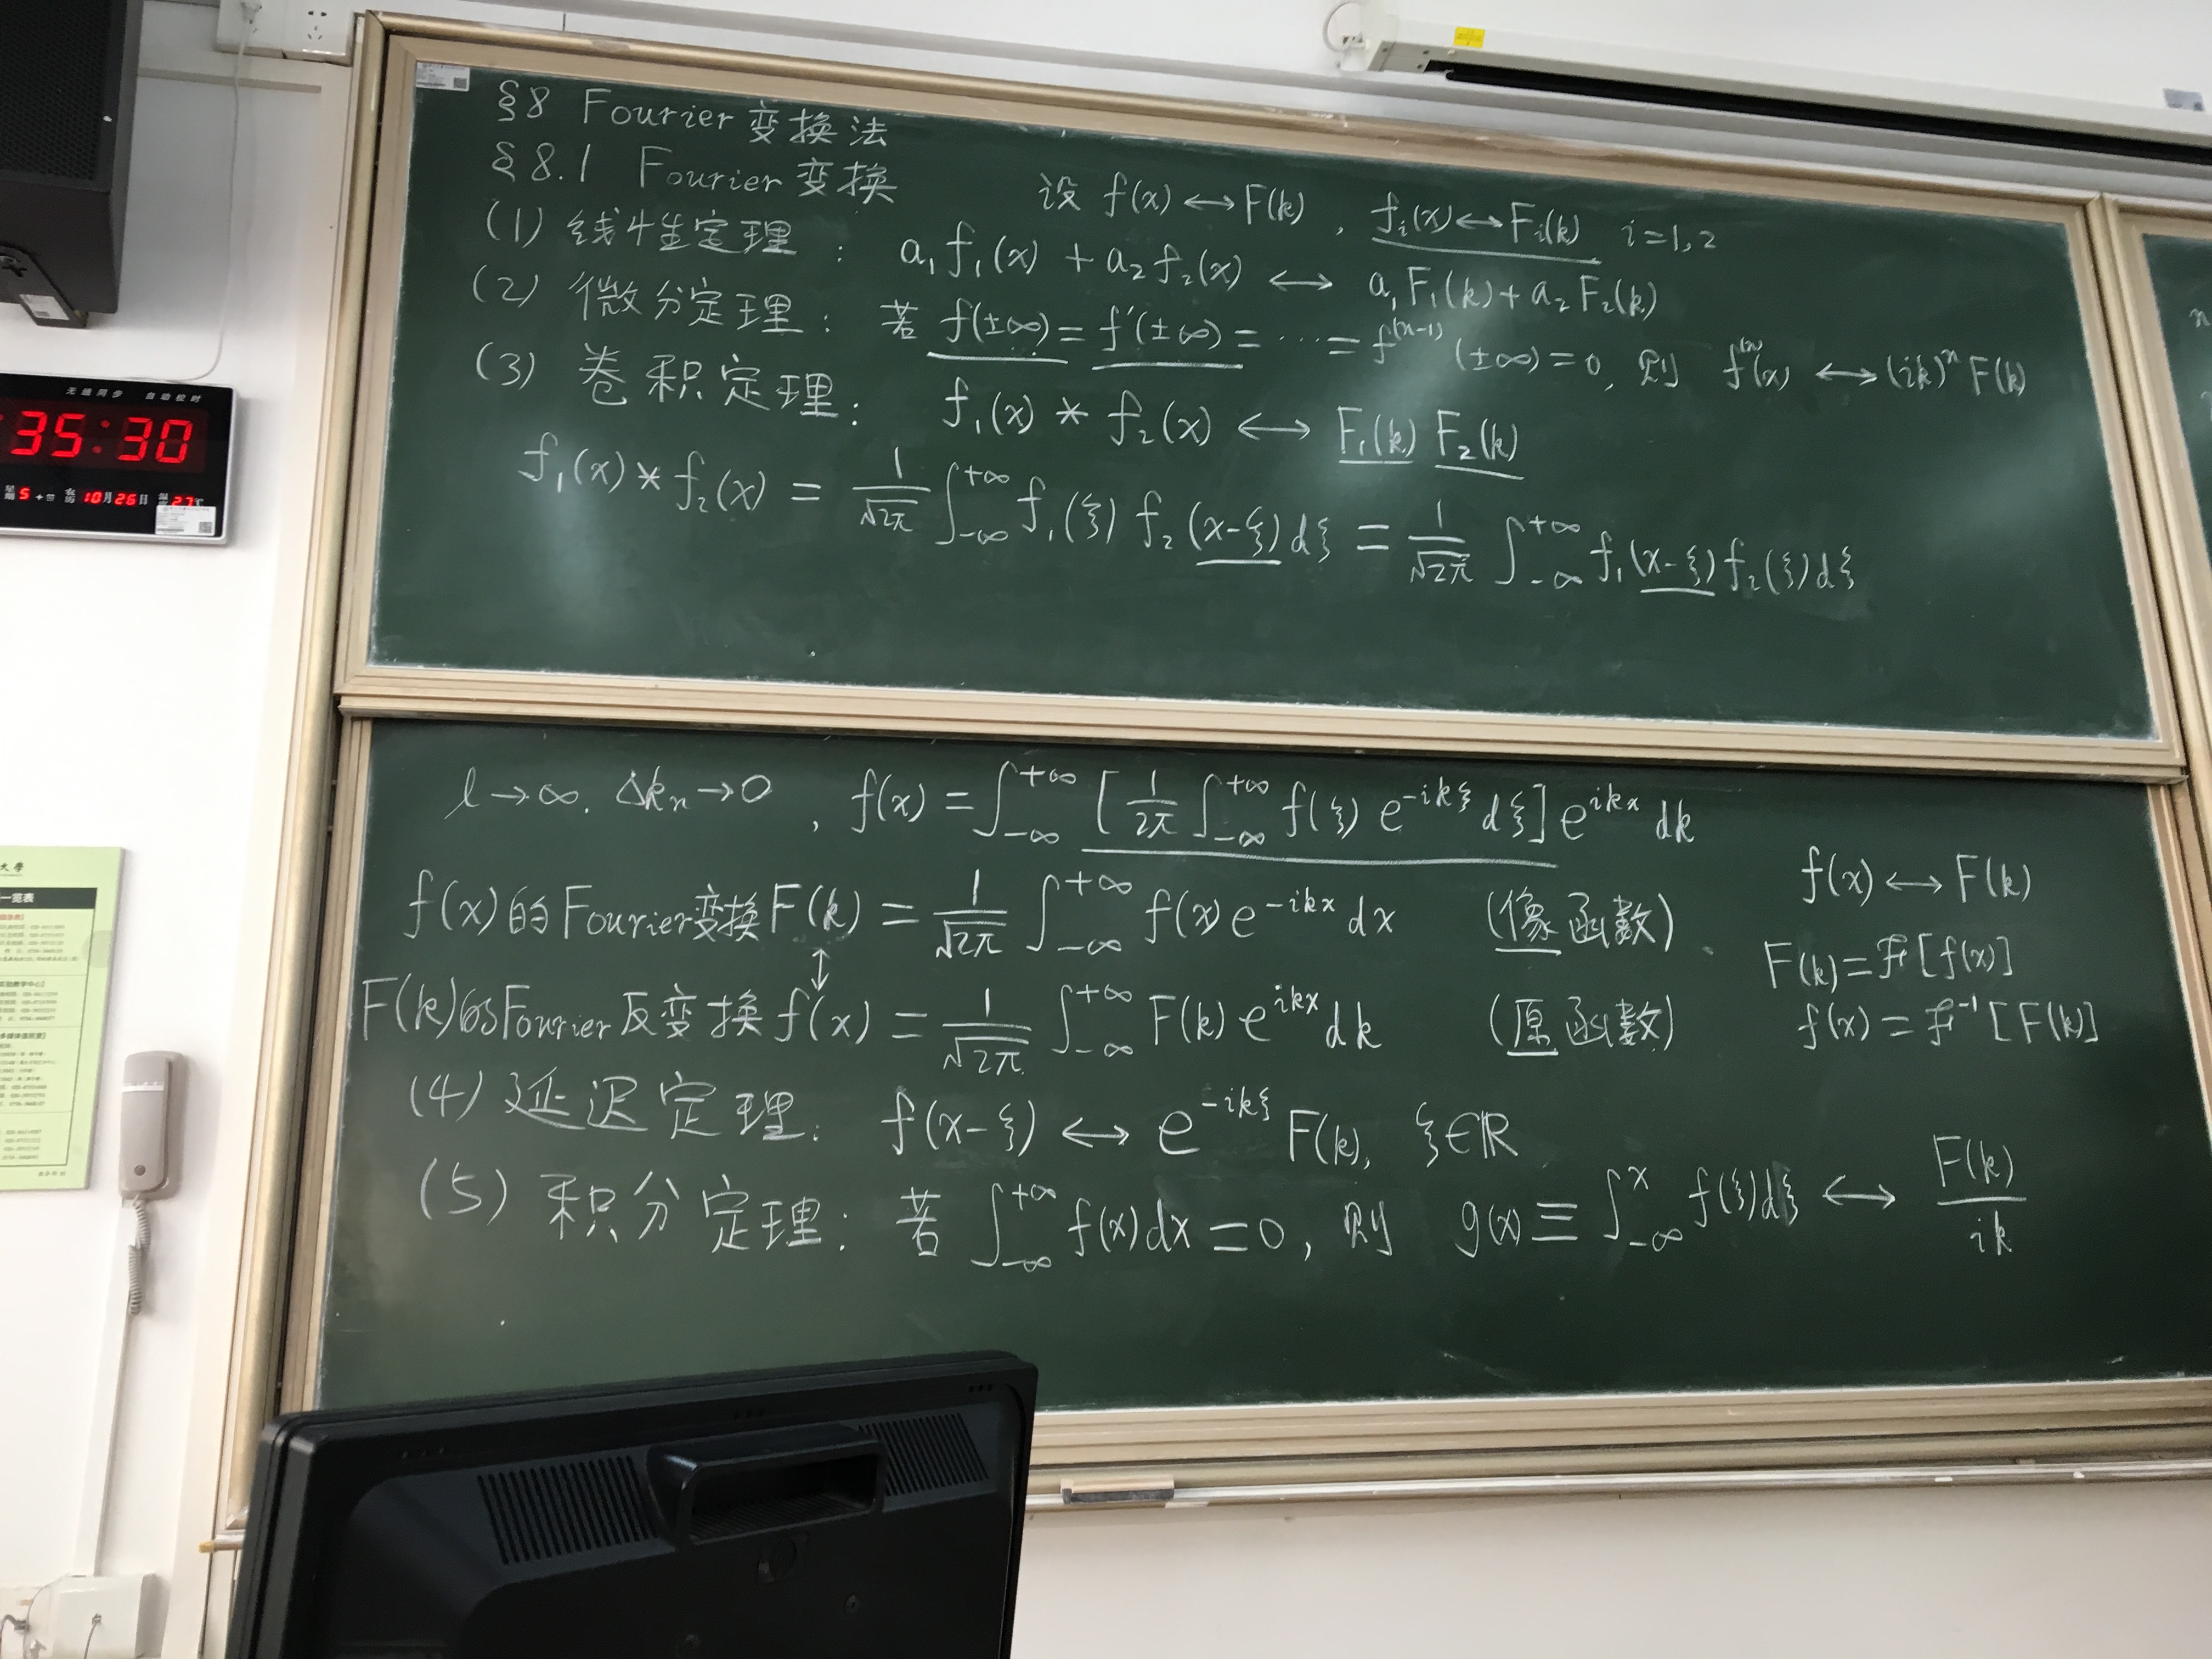 §8 Fourier变换法
§8.1 Fourier变换
设 f(x)↔F(k), f_i(x)↔F_i(k) i=1,2
(1) 线性定理: a₁f₁(x) + a₂f₂(x) ↔ a₁F₁(k) + a₂F₂(k)
(2) 微分定理: 若 f(±∞) = f'(±∞) = ⋯ = f^(n-1)(±∞) = 0, 则 f^(n)(x) ↔ (ik)^n F(k)
(3) 卷积定理: f₁(x) * f₂(x) ↔ F₁(k) F₂(k)
f₁(x) * f₂(x) = 1/√2π ∫_{-∞}^{+∞} f₁(ξ) f₂(x-ξ)dξ = 1/√2π ∫_{-∞}^{+∞} f₁(x-ξ) f₂(ξ)dξ
l→∞. Δk_n→0, f(x) = ∫_{-∞}^{+∞} [1/2π ∫_{-∞}^{+∞} f(ξ) e^{-ikξ} dξ] e^{ikx} dk
f(x)↔F(k)
f(x)的Fourier变换F(k) = 1/√2π ∫_{-∞}^{+∞} f(x) e^{-ikx} dx (像函数).
↕
F(k)=ℱ[f(x)]
F(k)的Fourier反变换f(x) = 1/√2π ∫_{-∞}^{+∞} F(k) e^{ikx} dk (原函数)
f(x) = ℱ^{-1}[F(k)]
(4) 延迟定理: f(x-ξ) ↔ e^{-ikξ} F(k), ξ∈ℝ
(5) 积分定理: 若 ∫_{-∞}^{+∞} f(x)dx = 0, 则 g(x) ≡ ∫_{-∞}^{x} f(ξ)dξ ↔ F(k)/ik
无线同步 自动校时
35:30
星期 5 农历 10月26日 温度 27℃
大学
一览表